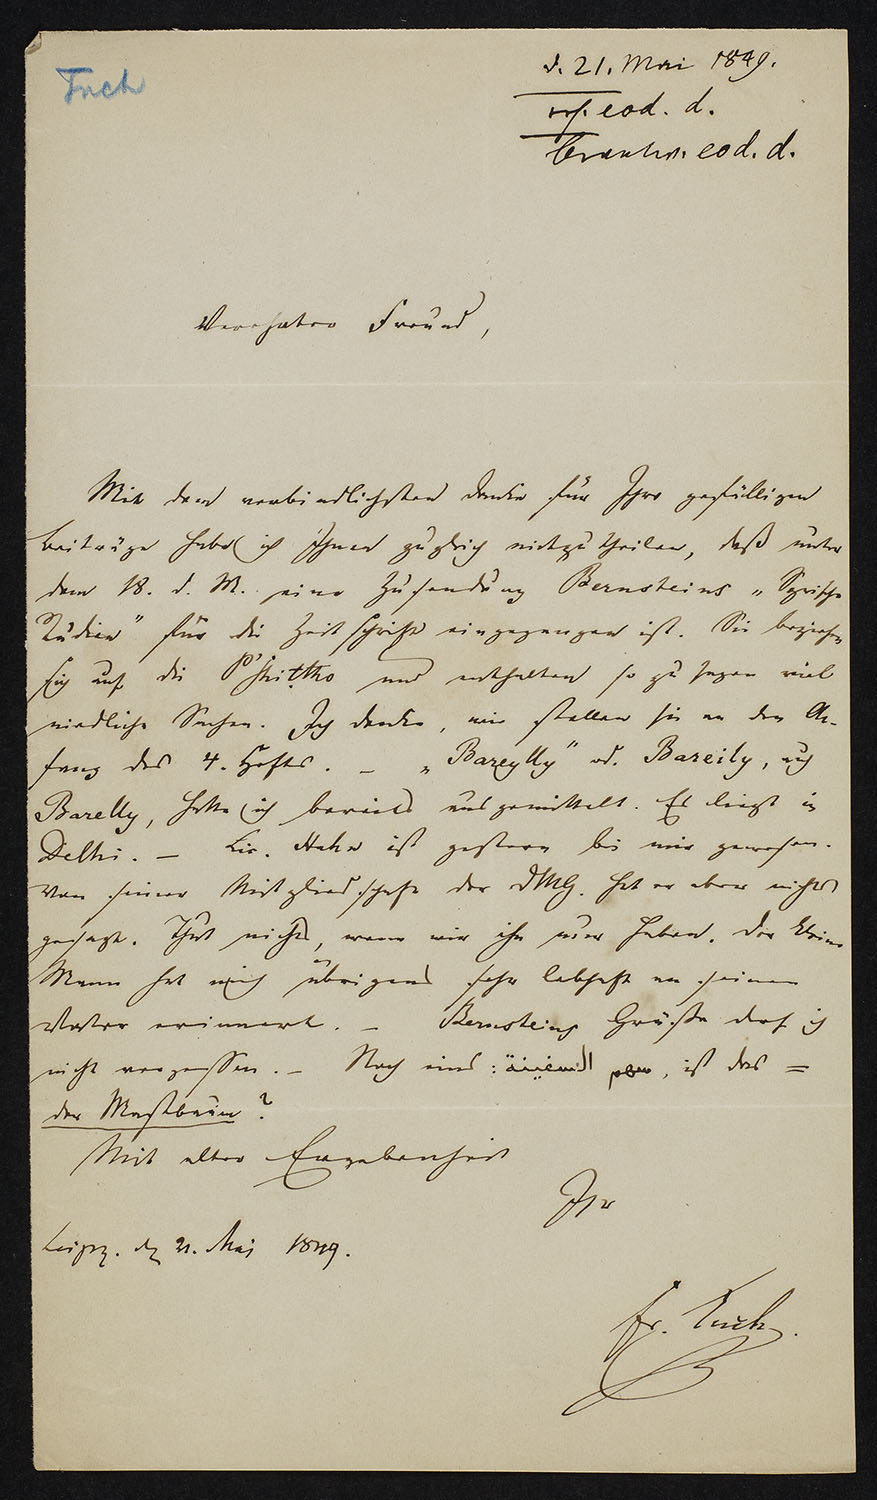 Tuch
d. 21. Mai 1849.
eod. d.
Beantw. eod. d.
Verehrter Freund,
Mit dem verbindlichsten Danke für Ihre gefälligen
Beiträge habe ich Ihnen zugleich mitzutheilen, daß unter
dem 18. d. M. eine Zusendung Bernsteins „Syrische
Studien" für die Zeitschrift eingegangen ist. Sie beziehen
sich auf die P'shittho und enthalten so zu sagen viel
niedliche Sachen. Ich denke, wir stellen sie an den An-
fang des 4. Hefts. – „Bareylly" od. Bareily, auch
Barelly, hatte ich bereits ausgemittelt. Es liegt in
Delhi. – Lic. Hahn ist gestern bei mir gewesen.
Von seiner Mitgliedschaft der DMG. hat er aber nichts
gesagt. Thut nichts, wenn wir ihn nur haben. Der kleine
Mann hat mich übrigens sehr lebhaft an seinen
Vater erinnert. – Bernsteins Grüße darf ich
nicht vergessen. – Noch eins: , ist das =
der Mastbaum?
Mit alter Ergebenheit
Ihr
Leipz. d. 21. Mai 1849.
Fr. Tuch.